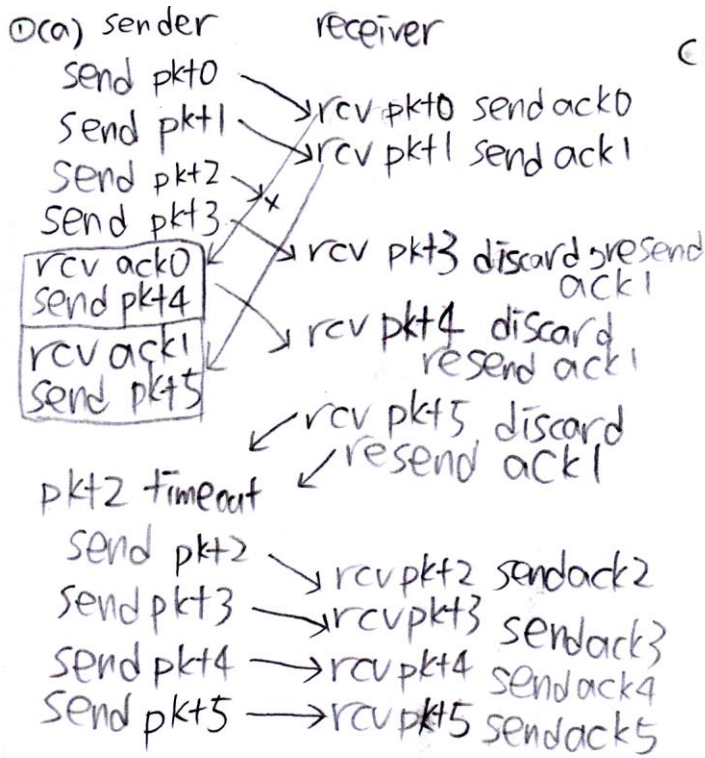 ①(a) sender receiver
C
send pkt0
rcv pkt0 send ack0
send pkt1
rcv pkt1 send ack1
send pkt2
x
send pkt3
rcv pkt3 discard, resend
ack1
rcv ack0
send pkt4
rcv pkt4 discard
resend ack1
rcv ack1
send pkt5
rcv pkt5 discard
resend ack1
pkt2 timeout
send pkt2
rcv pkt2 send ack2
send pkt3
rcv pkt3 send ack3
send pkt4
rcv pkt4 send ack4
send pkt5
rcv pkt5 send ack5